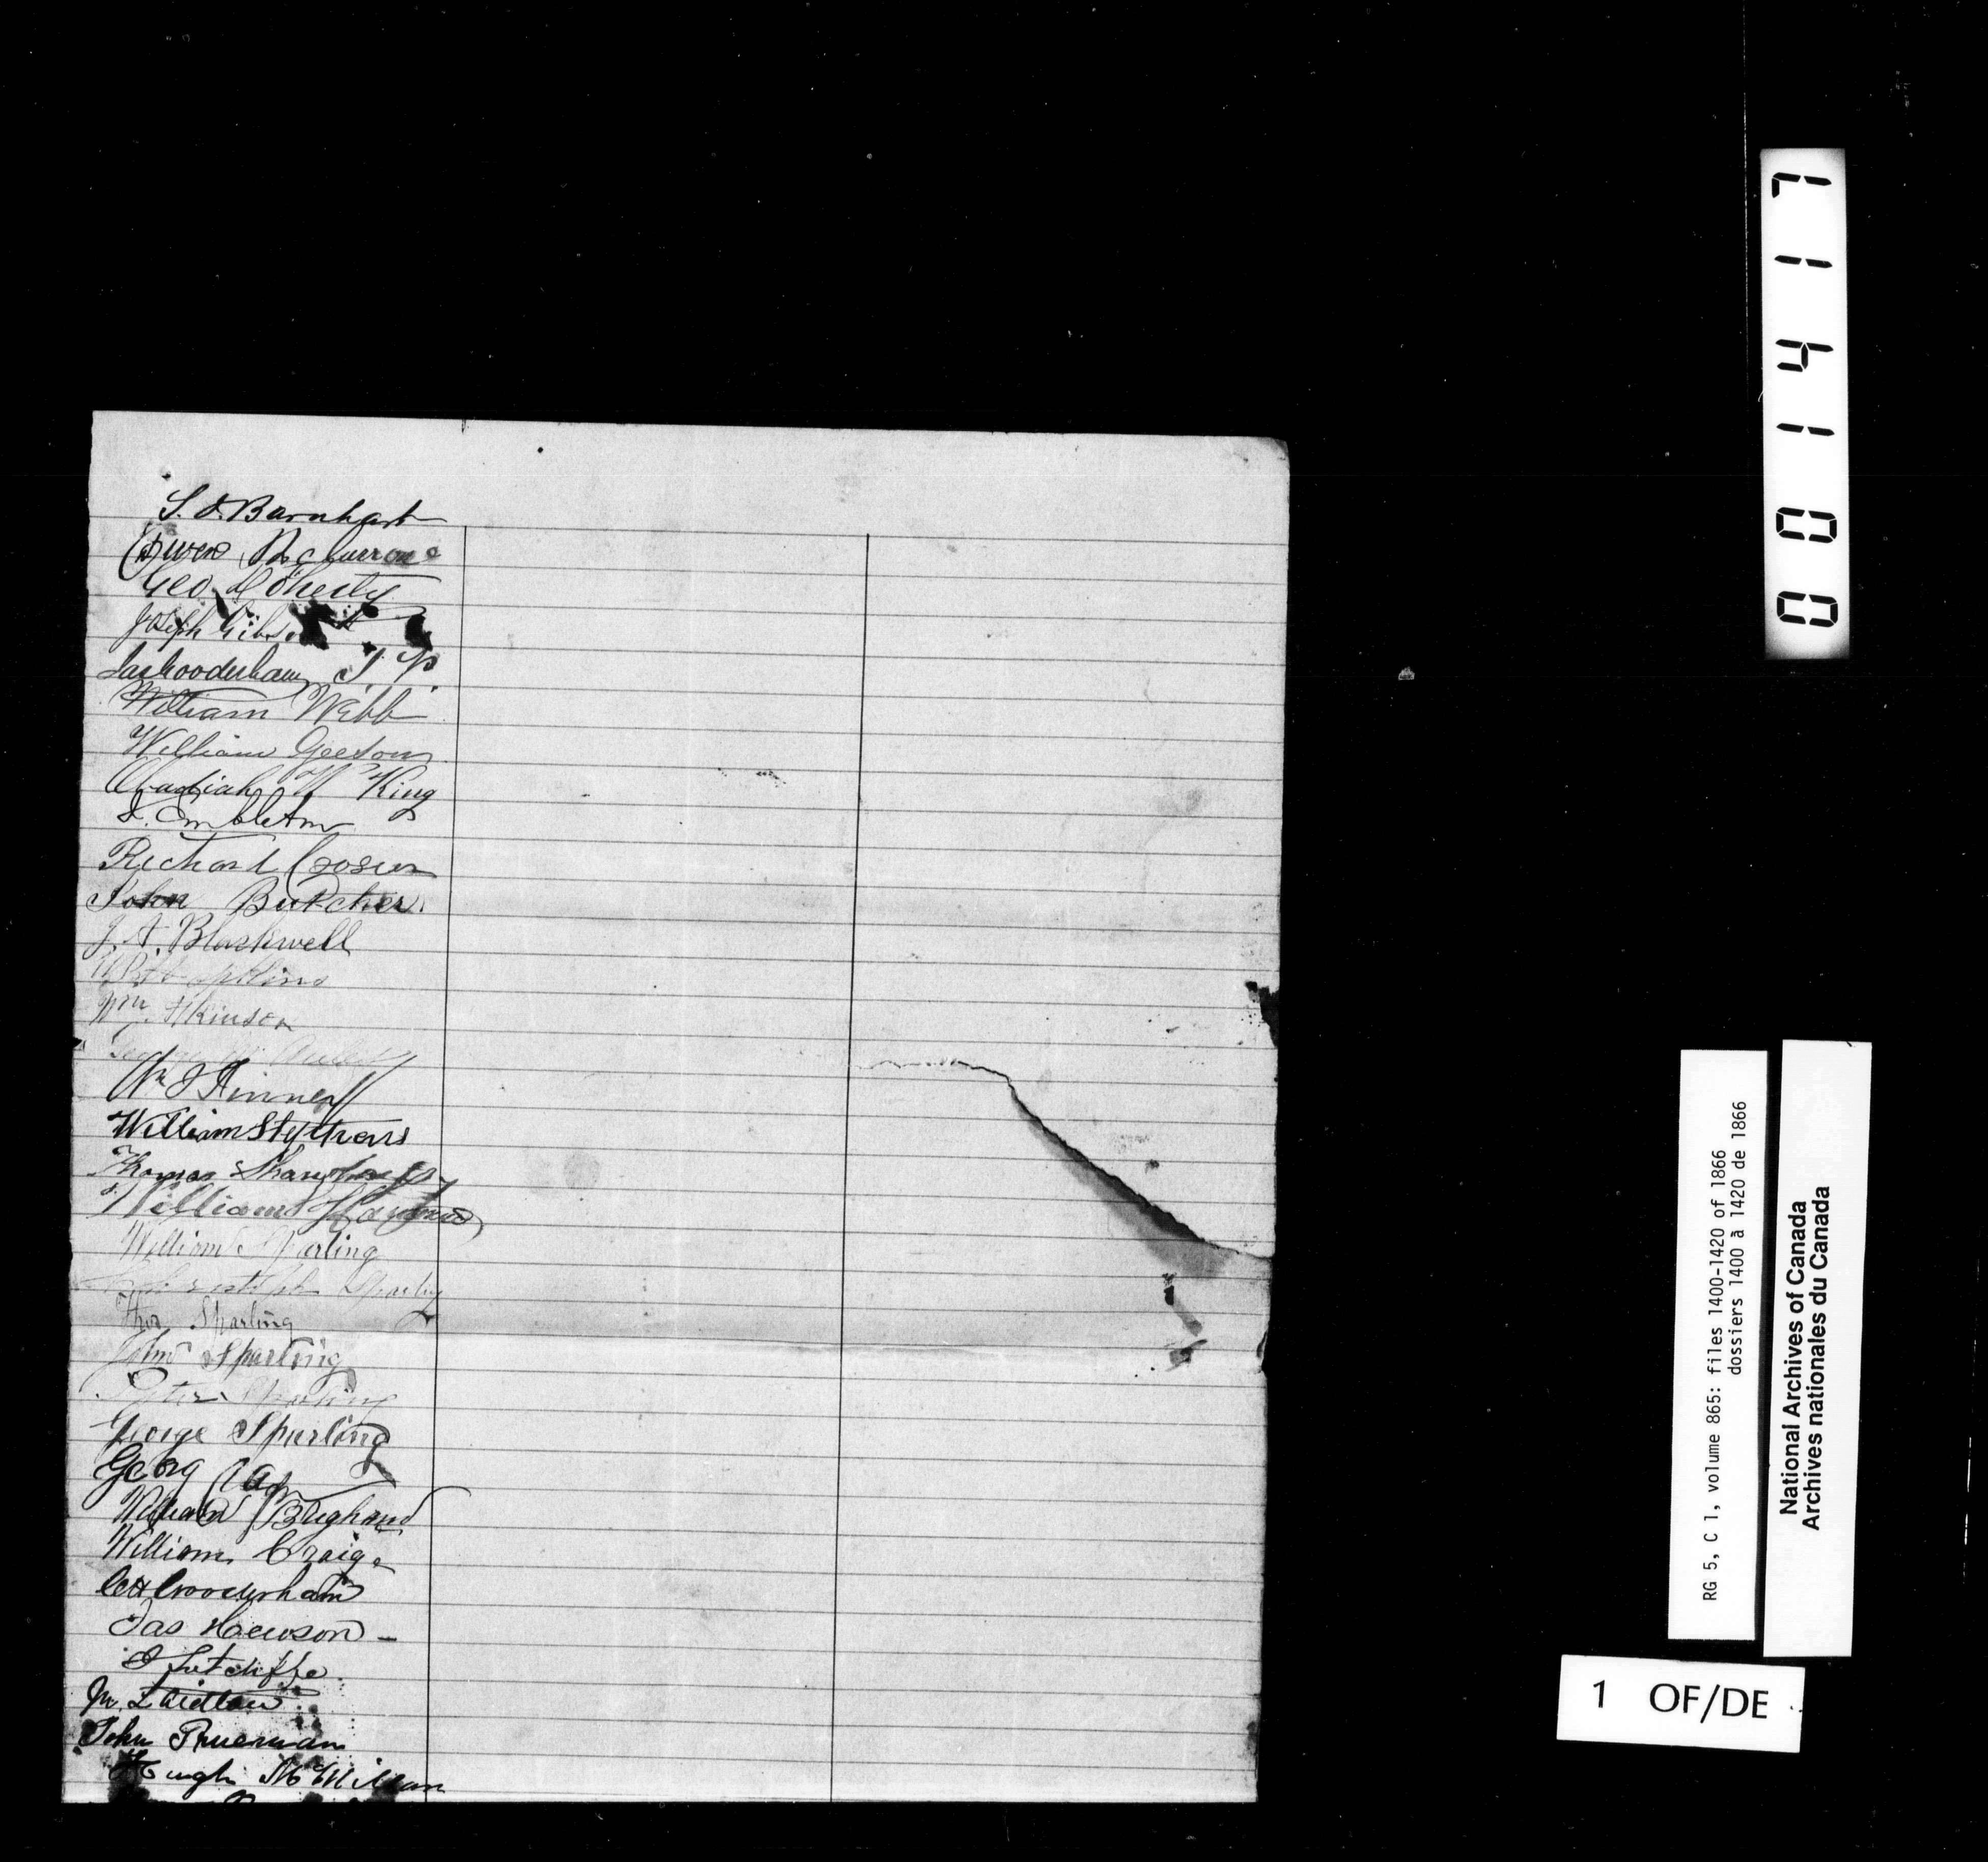 S. J. Barnhart
Owen McCurron
Geo. Doherty
Joseph Gibson
Jas Gooderham J. P.
William Webb
William Geeson
Obadiah W King
J. Embleton
Richard Crosier
John Butcher
J. A. Blackwell
Hopkins
Wm. Atkinson
George
Wm J Kinney
William Stythens
Thomas
William
William Sparling
Sparling
Thos Sparling
John Sparling
Peter Sparling
George Sparling
Georg
William Brigham
William Craig
CH Gooderham
Jas Hewson
J Sutcliffe
Laidlaw
John Trueman
Hugh McMillan
001417
RG 5, C 1, volume 865: files 1400-1420 of 1866
dossiers 1400 à 1420 de 1866
National Archives of Canada
Archives nationales du Canada
1 OF/DE